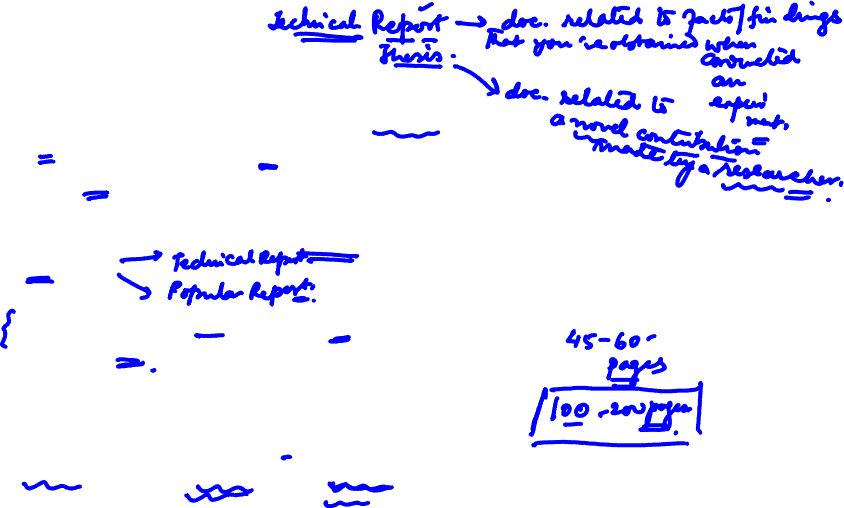 Technical Report → doc. related to facts/findings
that you've obtained when
conducted
an
experi
ment.
Thesis.
doc. related to
a novel contribution
made by a researcher.
→ Technical Report
→ Popular Report.
45-60
pages
100-200 pages.